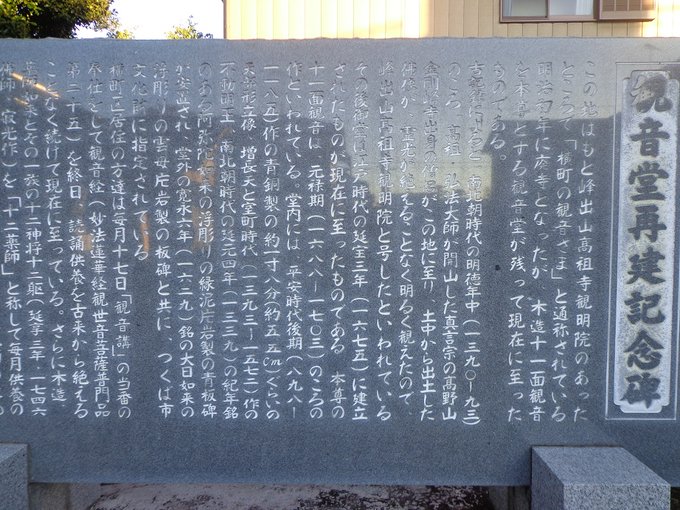 観音堂再建記念碑
この地はもと峰出山高祖寺観明院のあった
ところで「横町の観音さま」と通称されている
明治初年に廃寺となったが、木造十一面観音
を本尊とする観音堂が残って現在に至った
ものである。
古記録によると、南北朝時代の明徳年中(一三九〇〜九三)
のころ、高祖・弘法大師が開山した真言宗の高野山
金剛峯寺出身の僧呂がこの地に至り、土中から出土した
御像が、霊光が絶えることなく明るく観えたので、
峰出山高祖寺観明院と号したといわれている
その後御堂は江戸時代の延宝三年(一六七五)に建立
されたものが現在に至ったものである 本尊の
十一面観音は、元禄期(一六八八〜一七〇三)のころの
作といわれている。堂内には、平安時代後期(八九八〜
一一八五)作の青銅製の約一寸八分約五五cmぐらいの
天部形立像、増長天と室町時代(一三九三〜一五七二)作の
不動明王、南北朝時代の延元四年(一三三九)の紀年銘
のある阿弥陀三尊来迎の浮彫りの緑泥片岩製の青板碑
が安置され、堂外の寛永六年(一六二九)銘の大日如来の
浮彫りの雲母片岩製の板碑と共に、つくば市
文化財に指定されている
横町に居住の方達は毎月十七日「観音講」の当番の
奉仕として観音経(妙法蓮華経観世音菩薩普門品
第二十五)を終日、読誦供養を古来から絶える
ことなく続けて現在に至っている。さらに木造
薬師如来とその一族の十二神将十二躯(延享三年・一七四六
佛師・寂光作)を「十二薬師」と称して毎月供養の